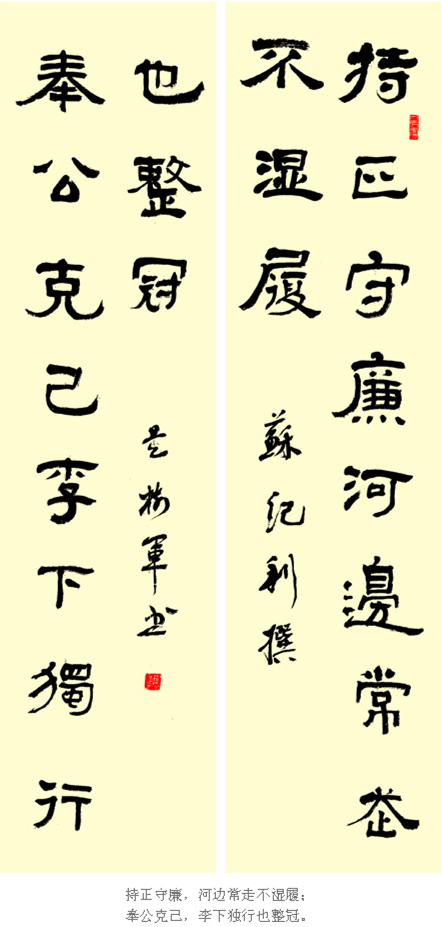 持正守廉河邊常走
不湿履
蘇纪利撰
奉公克己李下獨行
也整冠
軍书
持正守廉，河边常走不湿履；
奉公克己，李下独行也整冠。